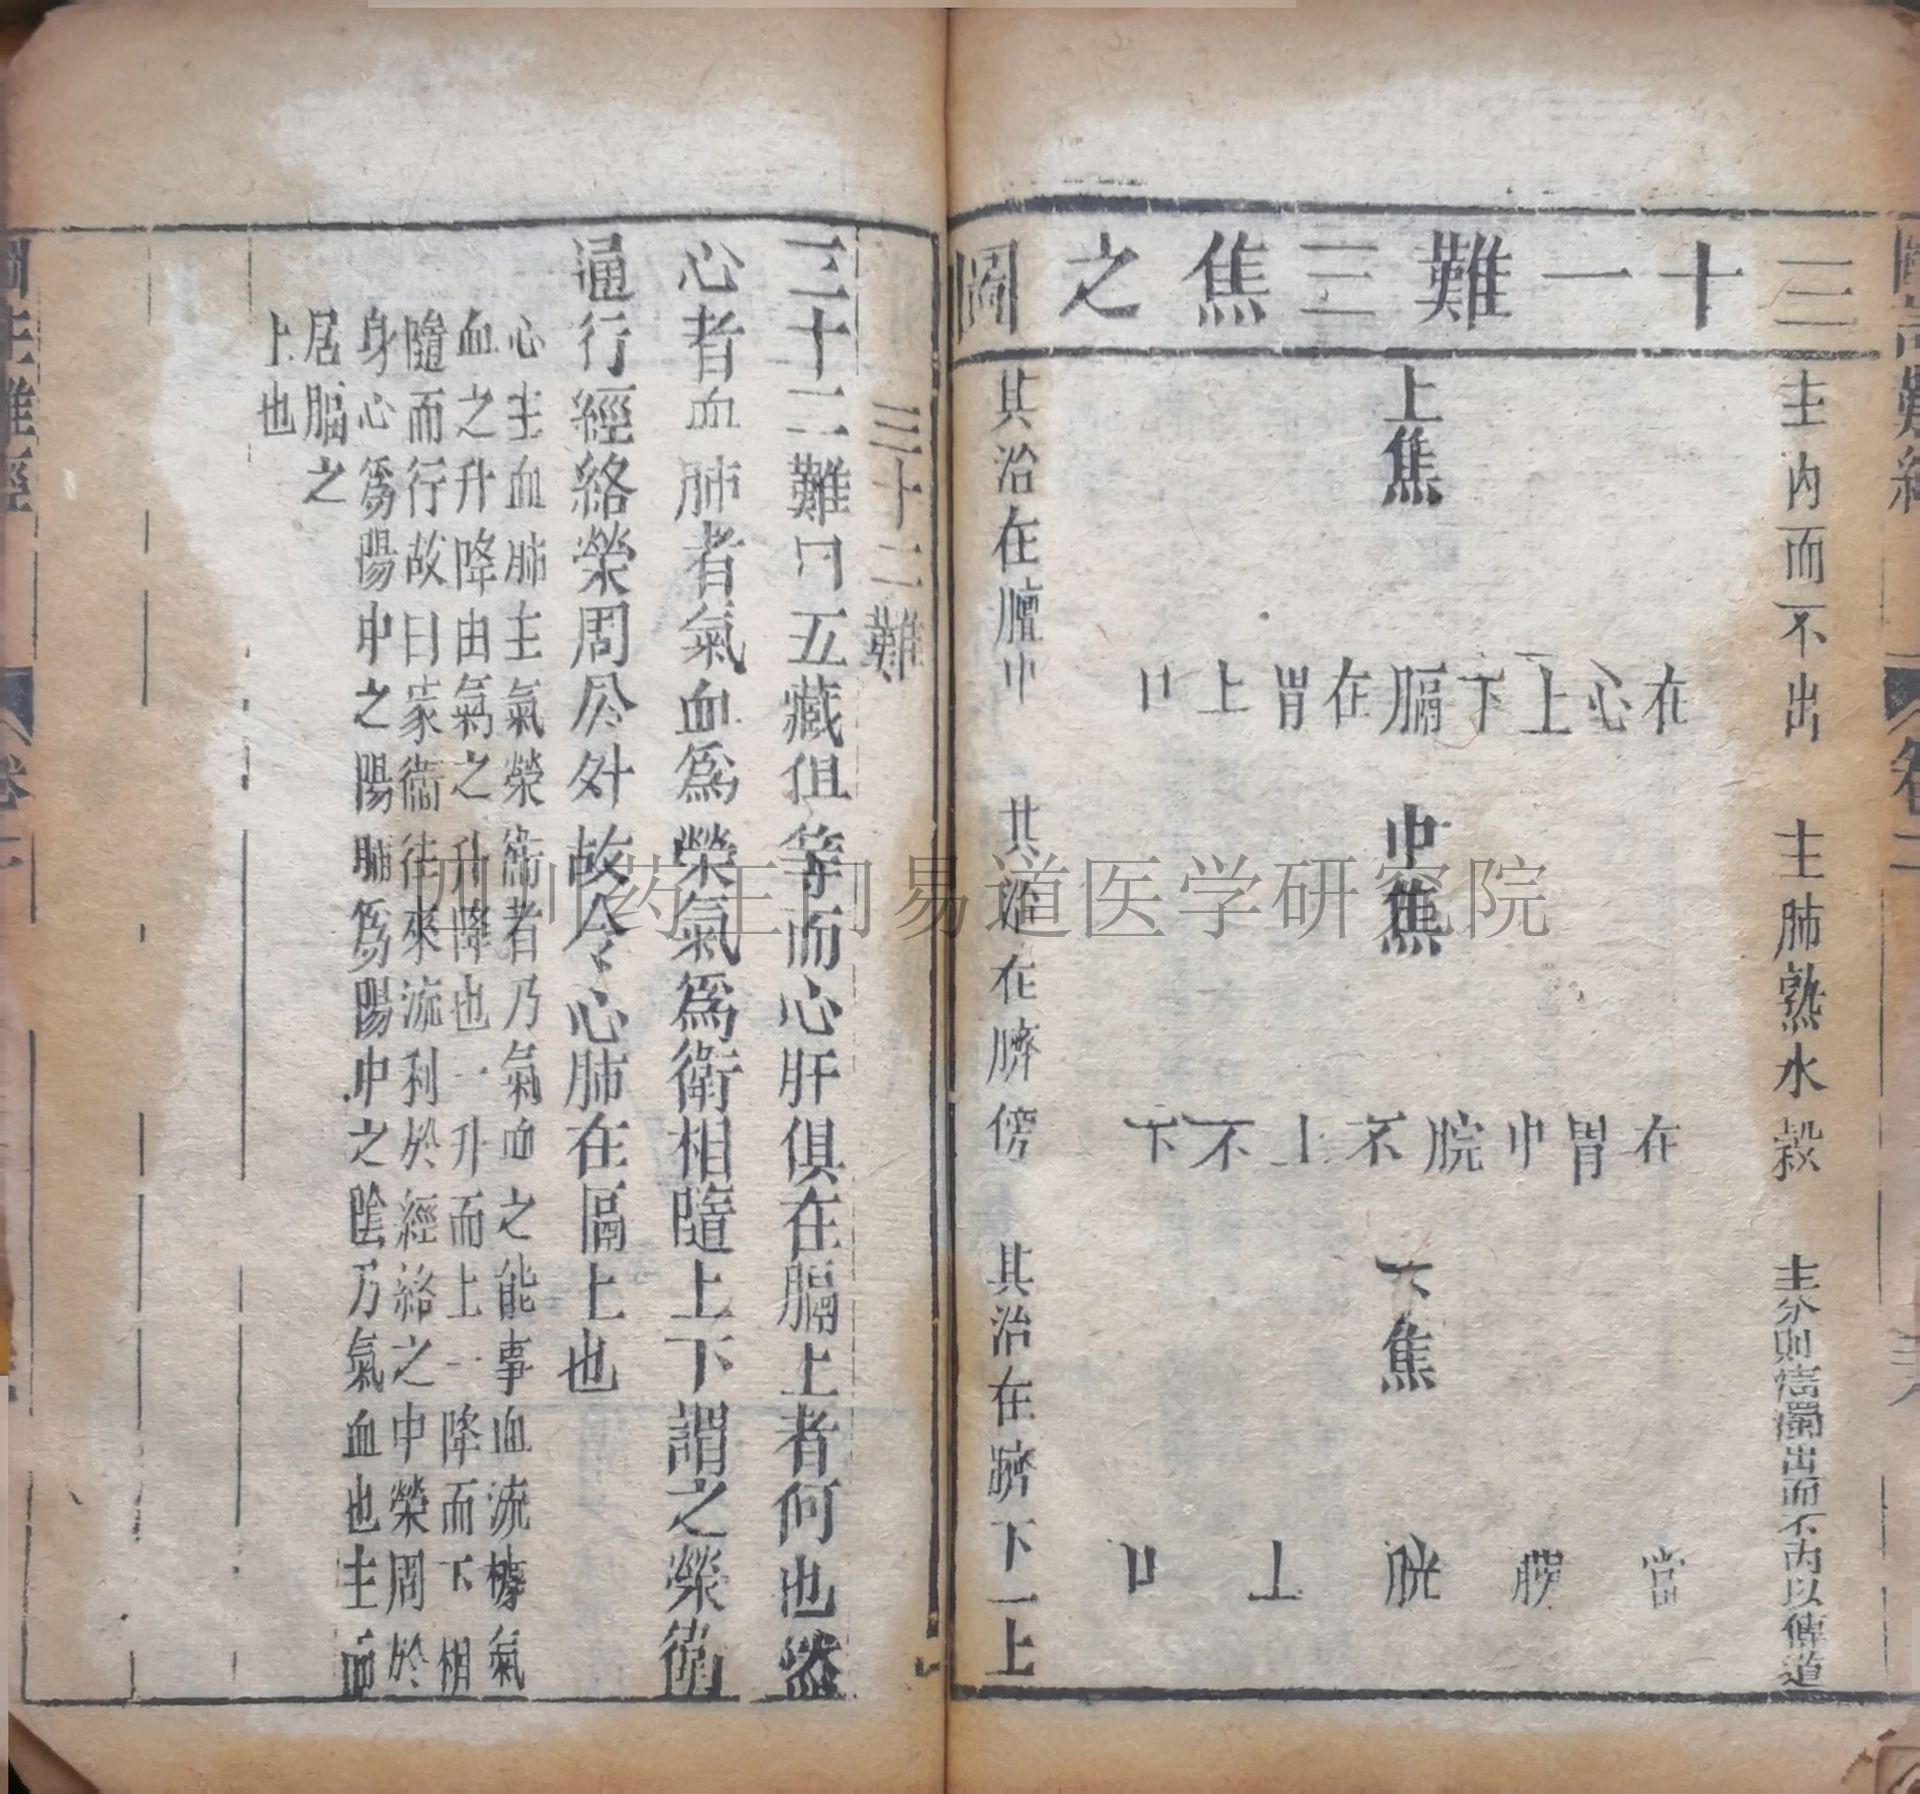 三十一難三焦之圖
主內而不出
主肺熟水穀
主分則清濁出而不內以傳道
上焦
在心上下膈在胃上口
中焦
在胃中脘不上不下
下焦
當膀胱上口
其治在膻中
其治在臍傍
其治在臍下一上
三十二難
三十二難曰五藏但等而心肝俱在膈上者何也然
心者血肺者氣血為榮氣為衛相隨上下謂之榮衛
通行經絡榮周於外故令心肺在膈上也
心主血肺主氣榮衛者乃氣血之能事血流據氣
血之升降由氣之升降也一升而上一降而下相
隨而行故曰家衛往來流利於經絡之中榮周於
身心為陽中之陽肺為陽中之陰乃氣血也主而
居膈之
上也
圖註難經
卷二
四川药王门易道医学研究院